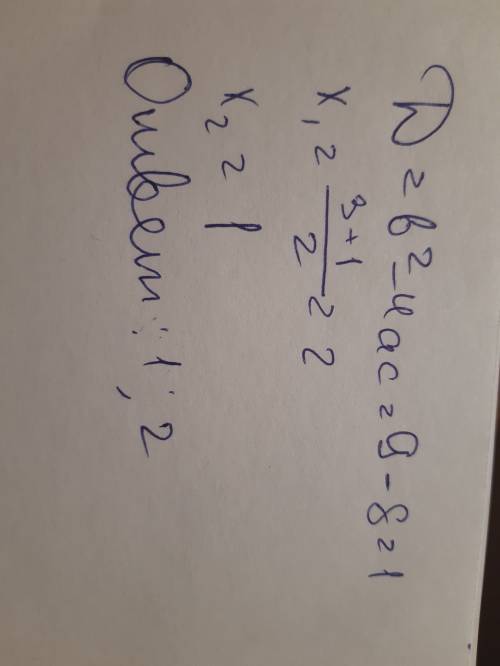 D = b² - 4ac = 9 - 8 = 1
x₁ = (3+1)/2 = 2
x₂ = 1
Ответ: 1; 2